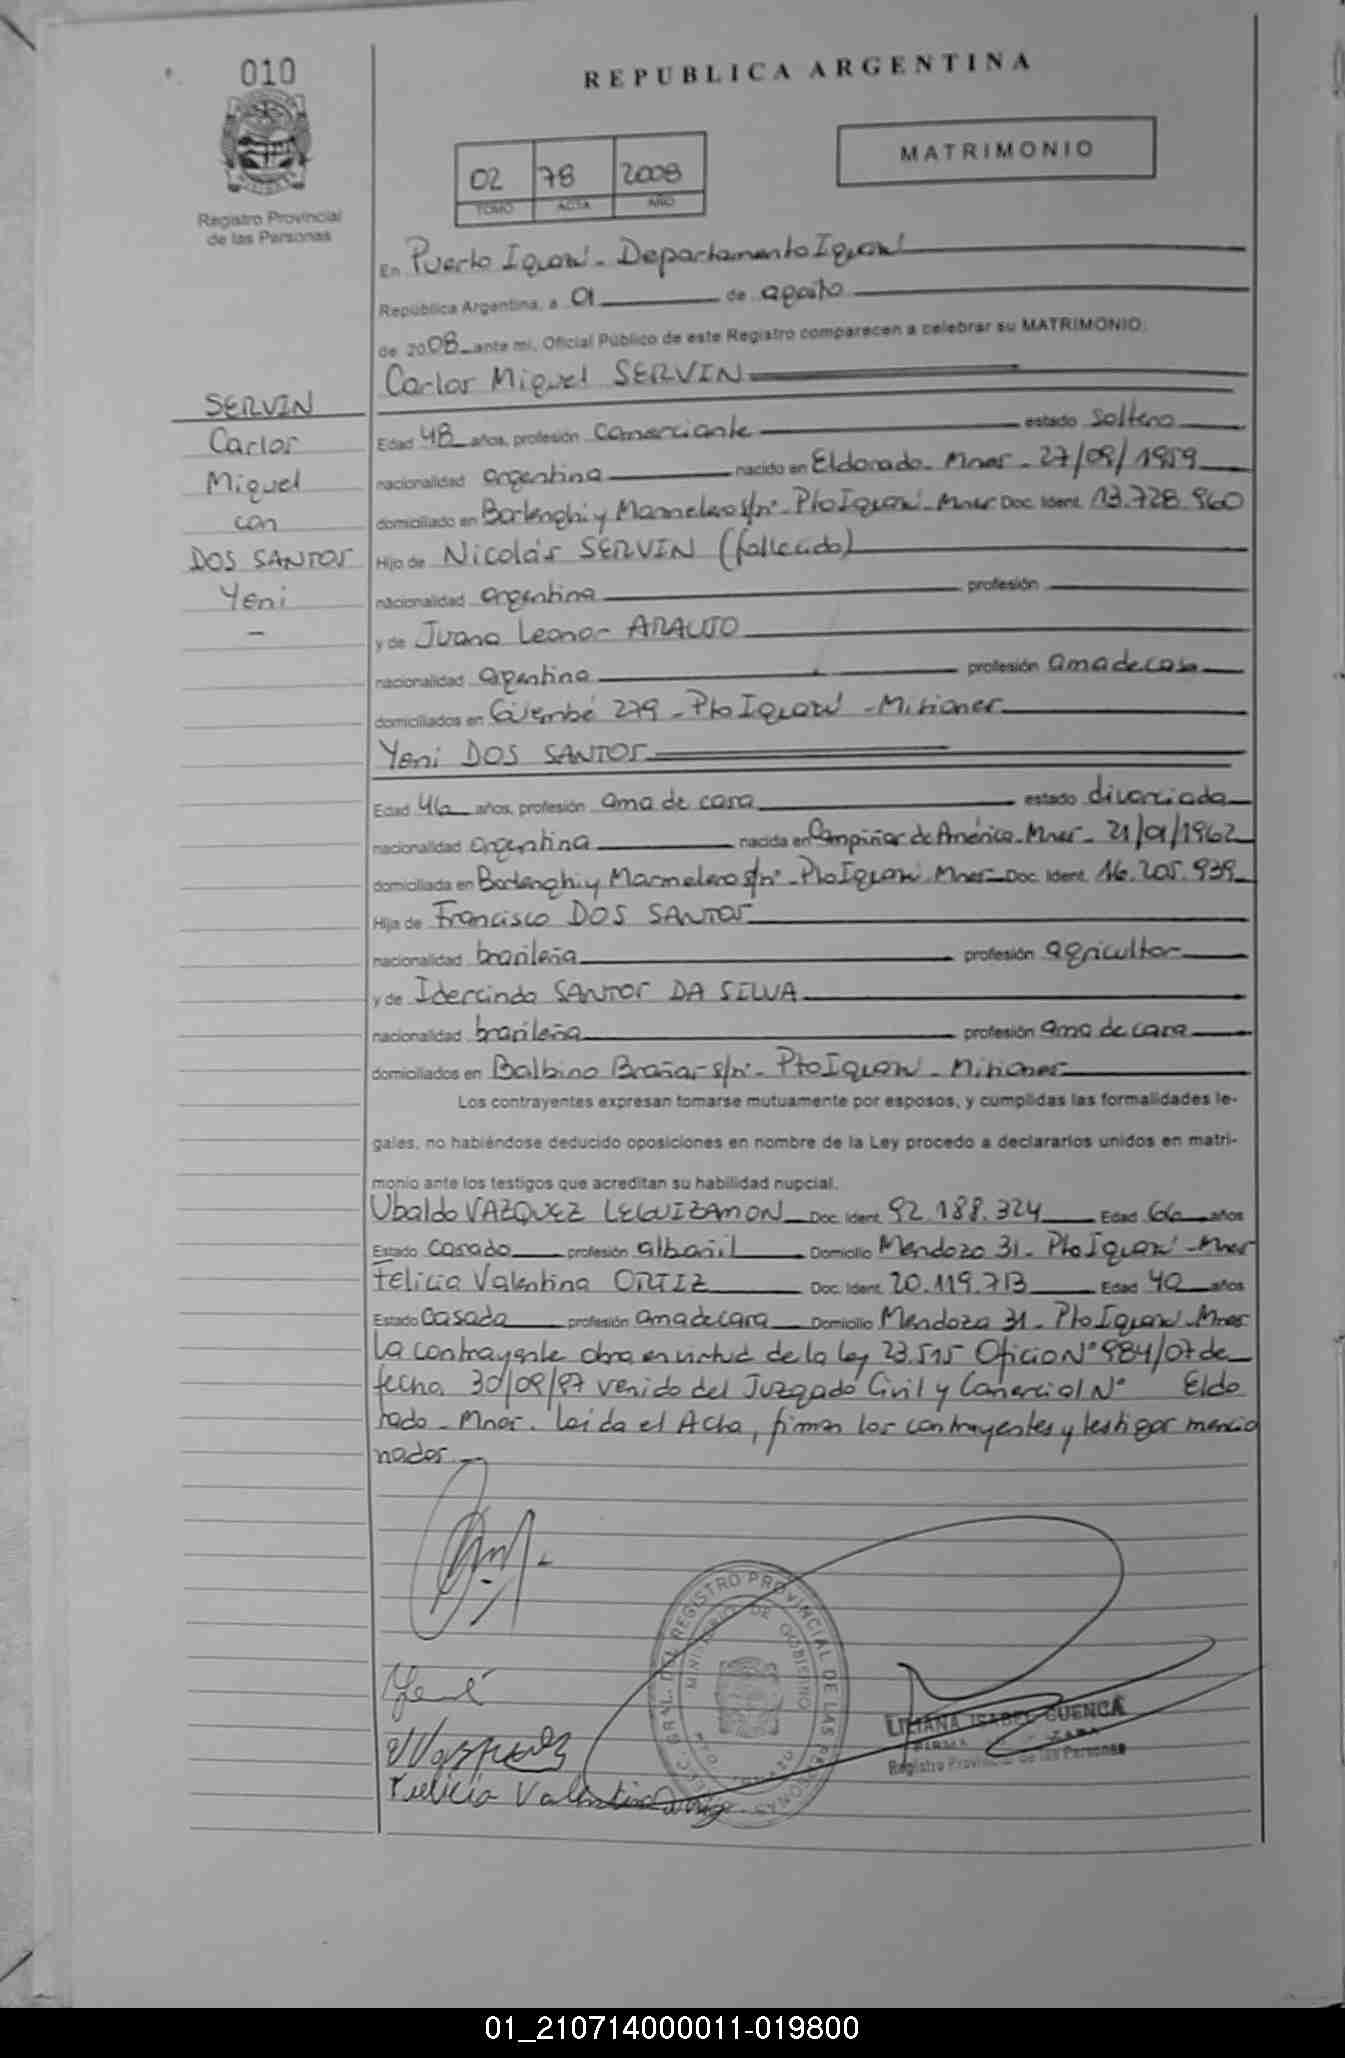 010
REPUBLICA ARGENTINA
MATRIMONIO
02 78 2008
TOMO ACTA AÑO
Registro Provincial
de las Personas
En Puerto Iguazú - Departamento Iguazú
República Argentina, a 01 de agosto
de 2008 ante mi, Oficial Público de este Registro comparecen a celebrar su MATRIMONIO:
Carlos Miguel SERVIN
SERVIN
Carlos
Miguel
con
DOS SANTOS
Yeni
-
Edad 48 años, profesión comerciante estado soltero
nacionalidad argentina nacido en Eldorado - Mnes - 27/09/1959
domiciliado en Borlenghi y Marmelero s/n° - Pto Iguazú - Mnes Doc. Ident. 13.728.960
Hijo de Nicolás SERVIN (fallecido)
nacionalidad argentina profesión
y de Juana Leonor ARAUJO
nacionalidad argentina profesión ama de casa
domiciliados en Güembé 279 - Pto Iguazú - Misiones
Yeni DOS SANTOS
Edad 46 años, profesión ama de casa estado divorciada
nacionalidad argentina nacida en Campiñas de América - Mnes - 21/01/1962
domiciliada en Borlenghi y Marmelero s/n° - Pto Iguazú - Mnes - Doc. Ident. 16.205.939
Hija de Francisco DOS SANTOS
nacionalidad brasileña profesión agricultor
y de Idercinda SANTOS DA SILVA
nacionalidad brasileña profesión ama de casa
domiciliados en Balbino Brañas s/n° - Pto Iguazú - Misiones
Los contrayentes expresan tomarse mutuamente por esposos, y cumplidas las formalidades le-
gales, no habiéndose deducido oposiciones en nombre de la Ley procedo a declararlos unidos en matri-
monio ante los testigos que acreditan su habilidad nupcial.
Ubaldo VAZQUEZ LEGUIZAMON Doc. Ident. 92.188.324 Edad 66 años
Estado casado profesión albañil Domicilio Mendoza 31 - Pto Iguazú - Mnes
Felicia Valentina ORTIZ Doc. Ident. 20.119.713 Edad 40 años
Estado casada profesión ama de casa Domicilio Mendoza 31 - Pto Iguazú - Mnes
La contrayente obra en virtud de la ley 23.515 Oficio N° 984/07 de
fecha 30/09/97 venido del Juzgado Civil y Comercial N° Eldo
rado - Mnes. Leída el Acta, firman los contrayentes y testigos mencio
nados. -
DIREC. GRAL. DEL REGISTRO PROVINCIAL DE LAS PERSONAS
MINISTERIO DE GOBIERNO
LILIANA ISABEL CUENCA
Registro Provincial de las Personas
Felicia Valentina Ortiz
01_210714000011-019800